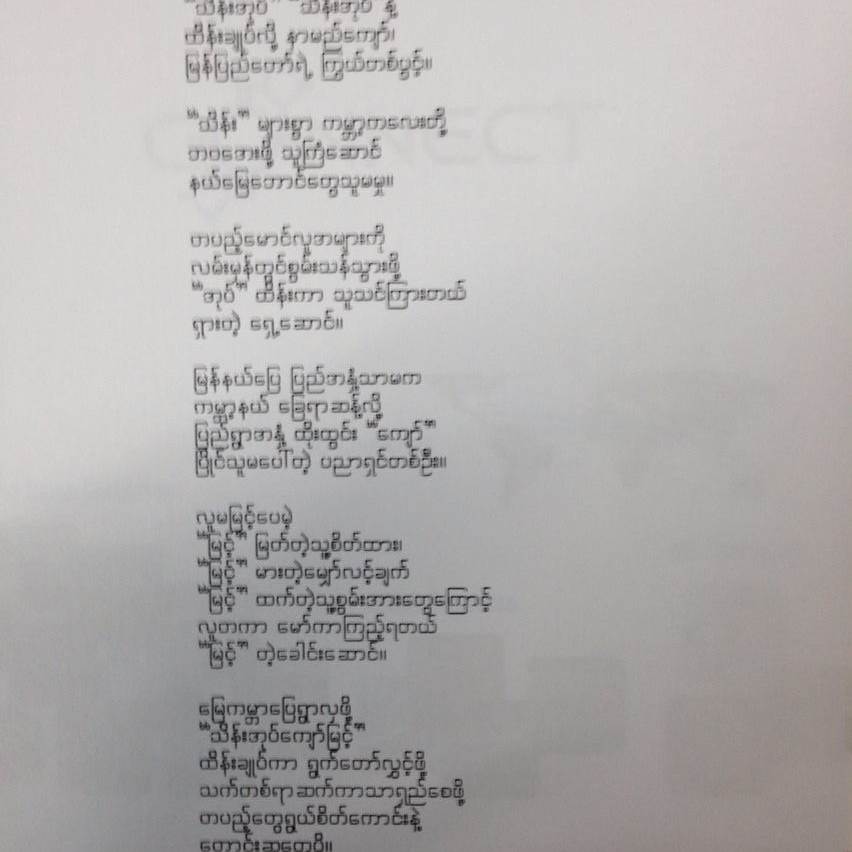 “သိန်းအုပ်” “သိန်းအုပ်”နဲ့
ထိန်းချုပ်လို့ နာမည်ကျော်၊
မြန်ပြည်တော်ရဲ့ ကြွယ်တစ်ပွင့်။
“သိန်း” များစွာ ကမ္ဘာ့ကလေးတို့
ဘဝအေးဖို့ သူကြံဆောင်
နယ်မြေဘောင်တွေသူမမှု။
တပည့်မောင်လူအများကို
လမ်းမှန်တွင်စွမ်းသန်သွားဖို့
“အုပ်” ထိန်းကာ သူသင်ကြားတယ်
ရှားတဲ့ ရှေ့ဆောင်။
မြန်နယ်ပြေ ပြည်အနှံ့သာမက
ကမ္ဘာ့နယ် ခြေရာဆန့်လို့
ပြည်ရွာအနှံ့ ထိုးထွင်း “ကျော်”
ပြိုင်သူမပေါ်တဲ့ ပညာရှင်တစ်ဦး။
လူမမြင့်ပေမဲ့
“မြင့်” မြတ်တဲ့သူ့စိတ်ထား၊
“မြင့်” မားတဲ့မျှော်လင့်ချက်
“မြင့်” ထက်တဲ့သူ့စွမ်းအားတွေကြောင့်
လူတကာ မော်ကာကြည့်ရတယ်
“မြင့်” တဲ့ခေါင်းဆောင်။
မြေကမ္ဘာပြေရွာလှဖို့
“သိန်းအုပ်ကျော်မြင့်”
ထိန်းချုပ်ကာ ရွက်တော်လွှင့်ဖို့
သက်တစ်ရာဆက်ကာသာရှည်စေဖို့
တပည့်တွေရွယ်စိတ်ကောင်းနဲ့
တောင်းဆုတွေပို့။